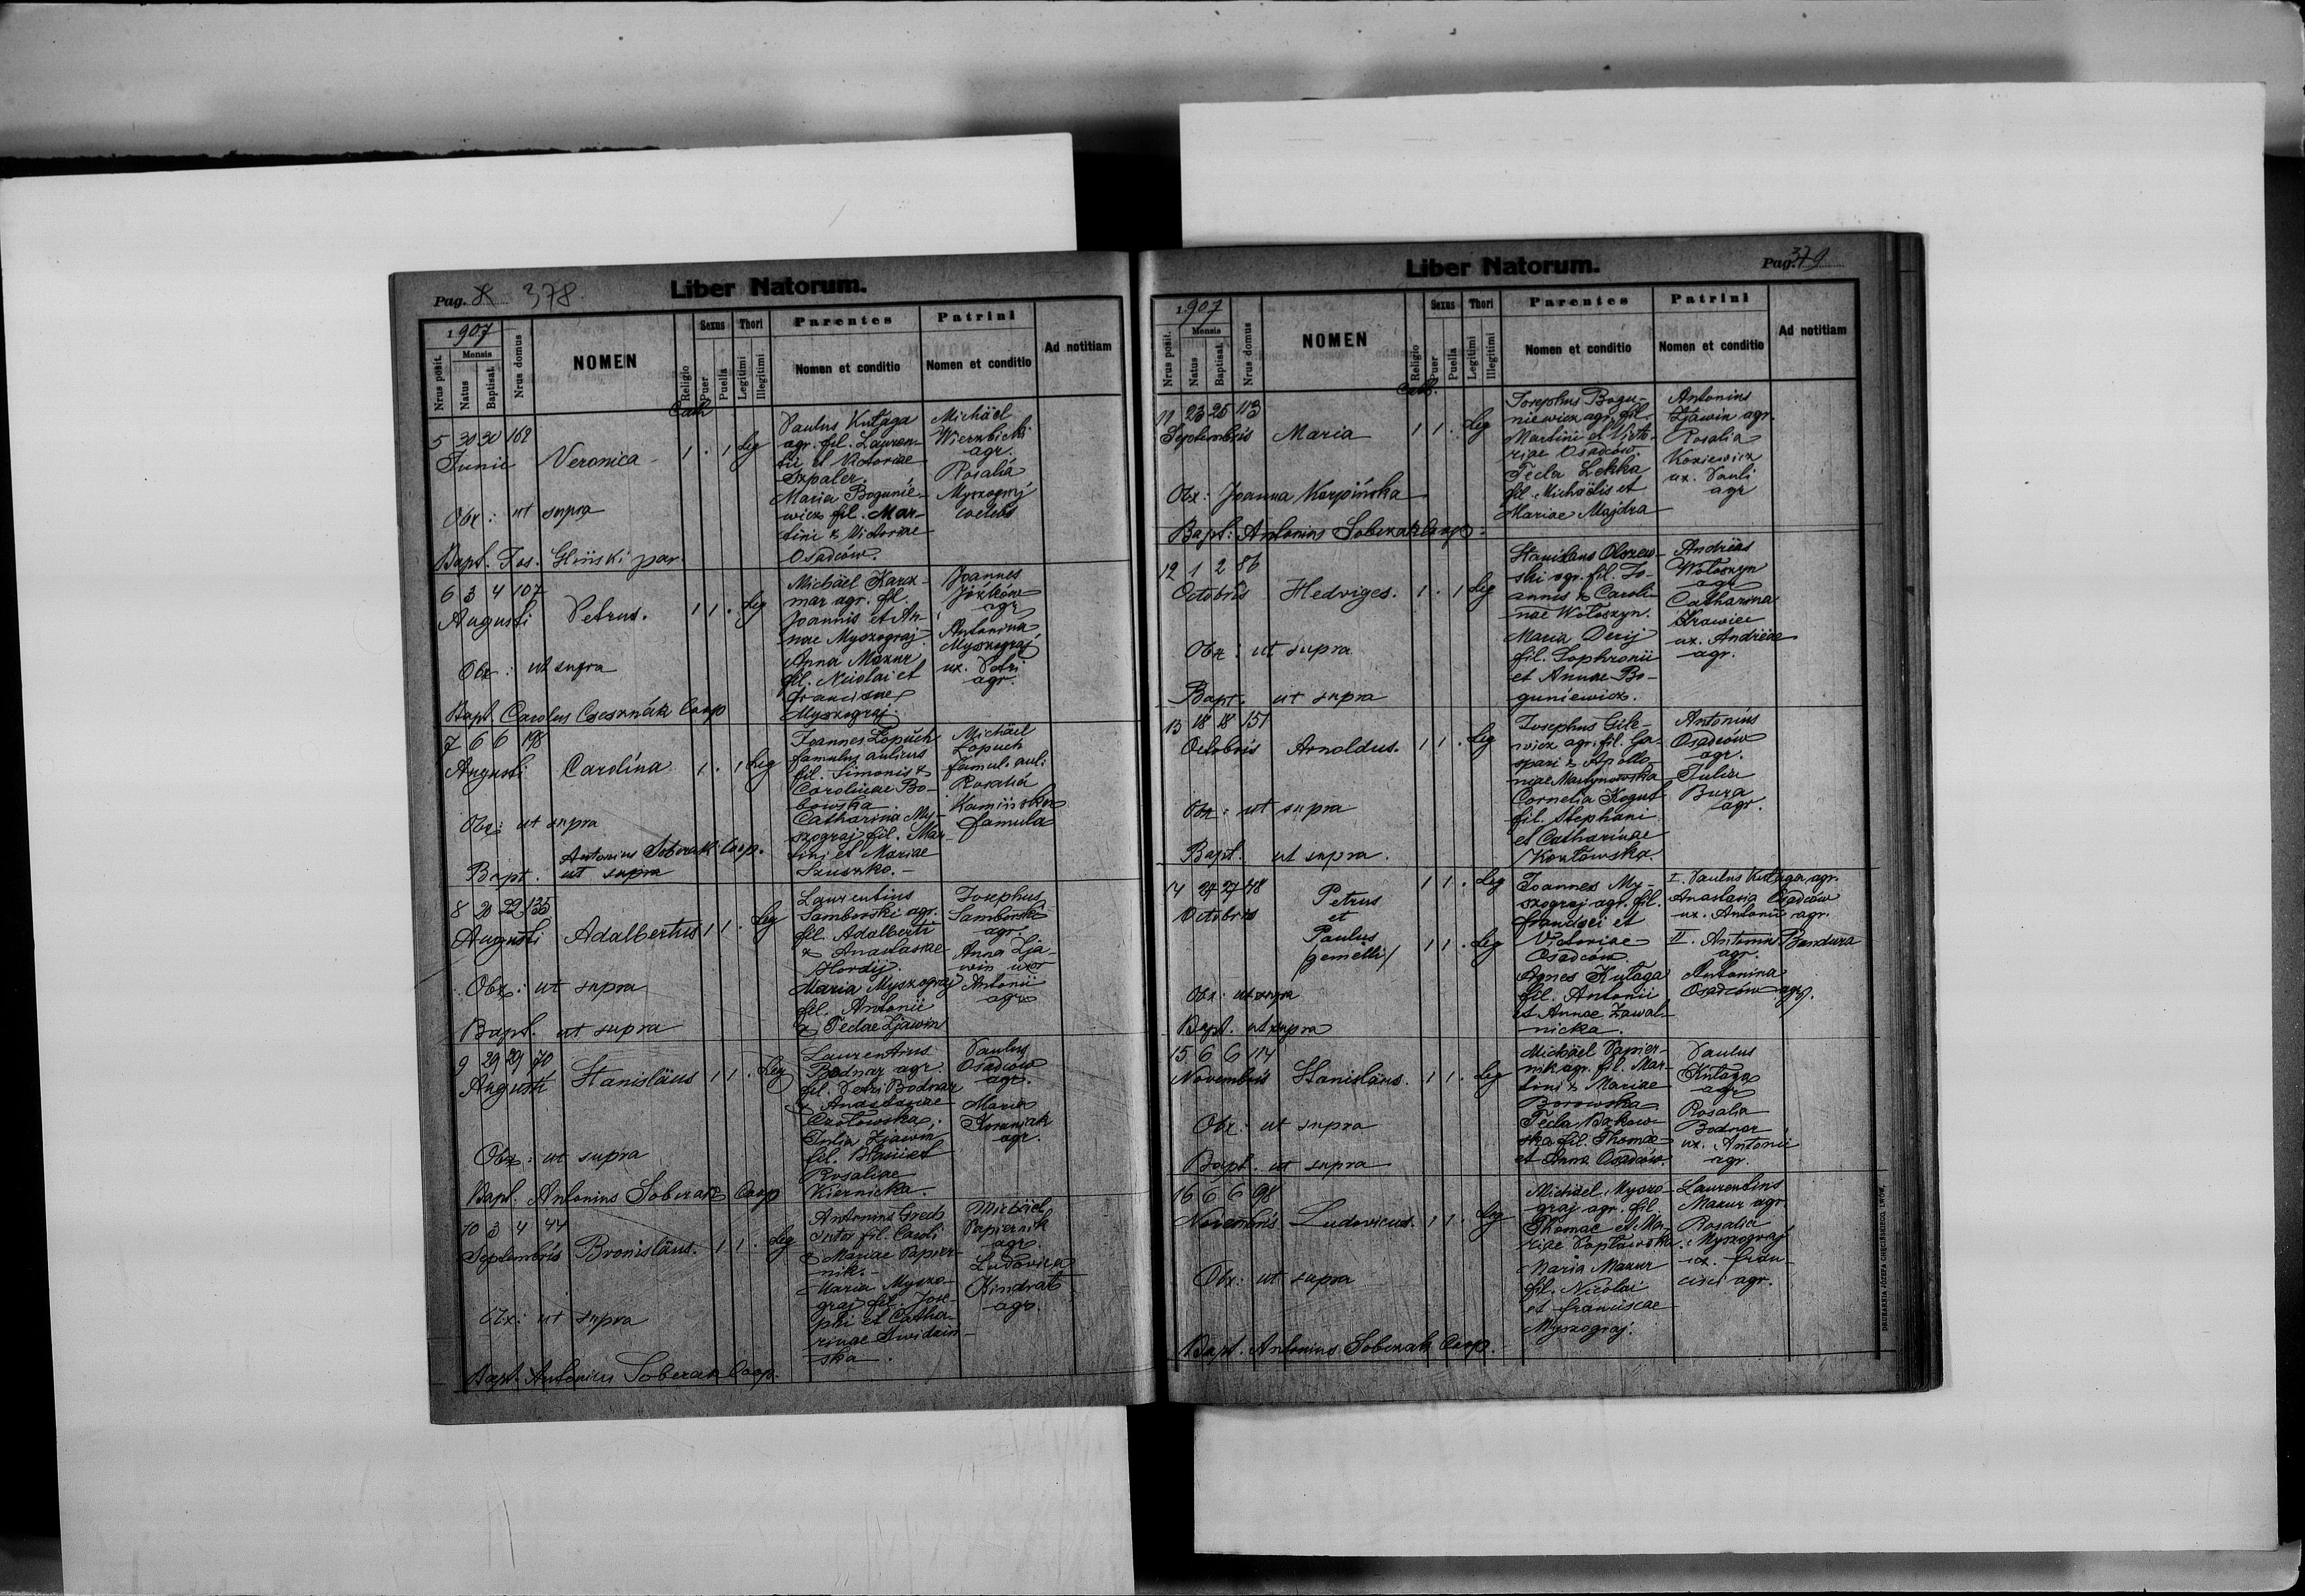 Pag. 8 378.
Liber Natorum.
1907
Nrus posit.
Mensis
Natus
Baptisat.
Nrus domus
NOMEN
Religio
Sexus
Puer
Puella
Thori
Legitimi
Illegitimi
Parentes
Nomen et conditio
Patrini
Nomen et conditio
Ad notitiam
Cath
5 30 30 162
Junii Veronica 1 . 1 Leg
Obx: ut supra
Bapt. Jos. Gliński par.
Paulus Kułaga
agr. fil. Lauren-
tii et Victoriae
Szpaler.
Maria Bogunie-
wicz fil. Mar-
tini & Victoriae
Osadców.
Michäel
Wierzbicki
agr.
Rosalia
Myszograj
coelebs
6 3 4 107
Augusti Petrus. 1 1 . Leg
Obx: ut supra
Bapt. Carolus Csesznák Coop
Michäel Karcz-
mar agr. fil.
Joannis et An-
nae Myszograj
Anna Mazur
fil. Nicolai et
Franciscae
Myszograj.
Joannes
Józków
agr.
Antonina
Myszograj
ux. Petri
agr.
7 6 6 198
Augusti Carolina 1 . 1 Leg
Obx: ut supra
Antonius Soberak Coop.
Bapt. ut supra
Joannes Łopuch
famulus aulicus
fil. Simonis &
Carolinae Bo-
bowska.
Catharina My-
szograj fil. Mar-
tini et Mariae
Szuszko.
Michäel
Łopuch
famul. aul.
Rosalia
Kamińska
famula
8 20 22 135
Augusti Adalbertus 1 1 . Leg
Obx: ut supra
Bapt. ut supra
Laurentius
Samborski agr.
fil. Adalberti
& Anastasiae
Hordij.
Maria Myszograj
fil. Antonii
& Teclae Zjawin
Josephus
Samborski
agr.
Anna Zja-
win uxor
Antonii
agr.
9 29 29 70
Augusti Stanisläus 1 1 . Leg
Obx: ut supra
Bapt. Antonius Soberak Coop
Laurentius
Bodnar agr.
fil. Petri Bodnar
& Anastasiae
Czołowska;
Julia Zjawin
fil. Blasii et
Rosaliae
Kiernicka.
Paulus
Osadców
agr.
Maria
agr.
10 3 4 44
Septembris Bronisläus. 1 1 . Leg
Obx: ut supra
Bapt. Antonius Soberak Coop.
Antonius Grech
fil. Caroli
& Mariae Papier-
nik.
Maria Myszo-
graj fil. Jose-
phi et Catha-
rinae Swidzin-
ska.
Michäel
Papiernik
agr.
Ludovica
Kindrat
agr.
Liber Natorum.
Pag. 379
1907
Nrus posit.
Mensis
Natus
Baptisat.
Nrus domus
NOMEN
Religio
Sexus
Puer
Puella
Thori
Legitimi
Illegitimi
Parentes
Nomen et conditio
Patrini
Nomen et conditio
Ad notitiam
Cath.
11 23 25 113
Septembris Maria 1 1 . Leg
Obx: Joanna Karpińska
Bapt: Antonius Soberak Coop:
Josephus Bogu-
niewicz agr. fil.
Martini et Victo-
riae Osadców.
Tecla Lekka
fil. Michäelis et
Mariae Majdra
Antonius
Zjawin agr.
Rosalia
Koziewicz
ux. Pauli
agr
12 1 2 86
Octobris Hedviges. 1 . 1 Leg
Obx: ut supra
Bapt. ut supra
Stanislaus Olszew-
ski agr. fil. Jo-
annis & Caroli-
nae Wołoszyn.
Maria Derij
fil. Sophronii
et Annae Bo-
guniewicz.
Andreas
Wołoszyn
agr.
Catharina
Krawiec
ux. Andreae
agr.
13 18 18 151
Octobris Arnoldus. 1 1 . Leg
Obx: ut supra
Bapt. ut supra.
Josephus Gile-
wicz agr. fil. Ga-
spari & Apollo-
niae Martynowska
Cornelia Kogut
fil. Stephani
et Catharinae
Kozłowska.
Antonius
Osadców
agr.
Julia
Bura
agr.
14 27 27 48
Octobris
Petrus 1 1 . Leg
et
Paulus 1 1 . Leg
/gemelli/
Obx: ut supra
Bapt. ut supra
Joannes My-
szograj agr. fil.
Francisci et
Victoriae
Osadców.
Agnes Kułaga
fil. Antonii
et Annae Zawal-
nicka.
I. Paulus Kułaga agr.
Anastasia Osadców
ux. Antonii agr.
II. Antonius Bandura
agr.
Antonina
Osadców agr.
15 6 6 114
Novembris Stanisläus. 1 1 . Leg
Obx: ut supra
Bapt. ut supra
Michäel Papier-
nik agr. fil. Mar-
tini & Mariae
Borowska
Tecla Bąkow-
ska fil. Thomae
et Anna Osadców.
Paulus
Kułaga
agr.
Rosalia
Bodnar
ux. Antonii
agr.
16 6 6 98
Novembris Ludovicus. 1 1 . Leg
Obx: ut supra
Bapt. Antonius Soberak Coop.
Michäel Myszo-
graj agr. fil.
Thomae et Ma-
riae Popławska.
Maria Mazur
fil. Nicolai
et Franciscae
Myszograj.
Laurentius
Mazur agr.
Rosalia
Myszograj
ux. Fran-
cisci agr.
DRUKARNIA JÓZEFA CHĘCIŃSKIEGO, LWÓW.